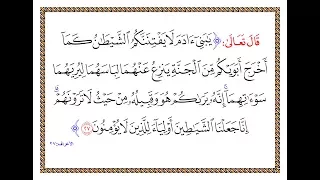 قَالَ تَعَالَى: ﴿ يَٰبَنِيٓ ءَادَمَ لَا يَفۡتِنَنَّكُمُ ٱلشَّيۡطَٰنُ كَمَآ
أَخۡرَجَ أَبَوَيۡكُم مِّنَ ٱلۡجَنَّةِ يَنزِعُ عَنۡهُمَا لِبَاسَهُمَا لِيُرِيَهُمَا
سَوۡءَٰتِهِمَآۚ إِنَّهُۥ يَرَىٰكُمۡ هُوَ وَقَبِيلُهُۥ مِنۡ حَيۡثُ لَا تَرَوۡنَهُمۡۗ
إِنَّا جَعَلۡنَا ٱلشَّيَٰطِينَ أَوۡلِيَآءَ لِلَّذِينَ لَا يُؤۡمِنُونَ ٢٧ ﴾
الأعراف: ٢٧